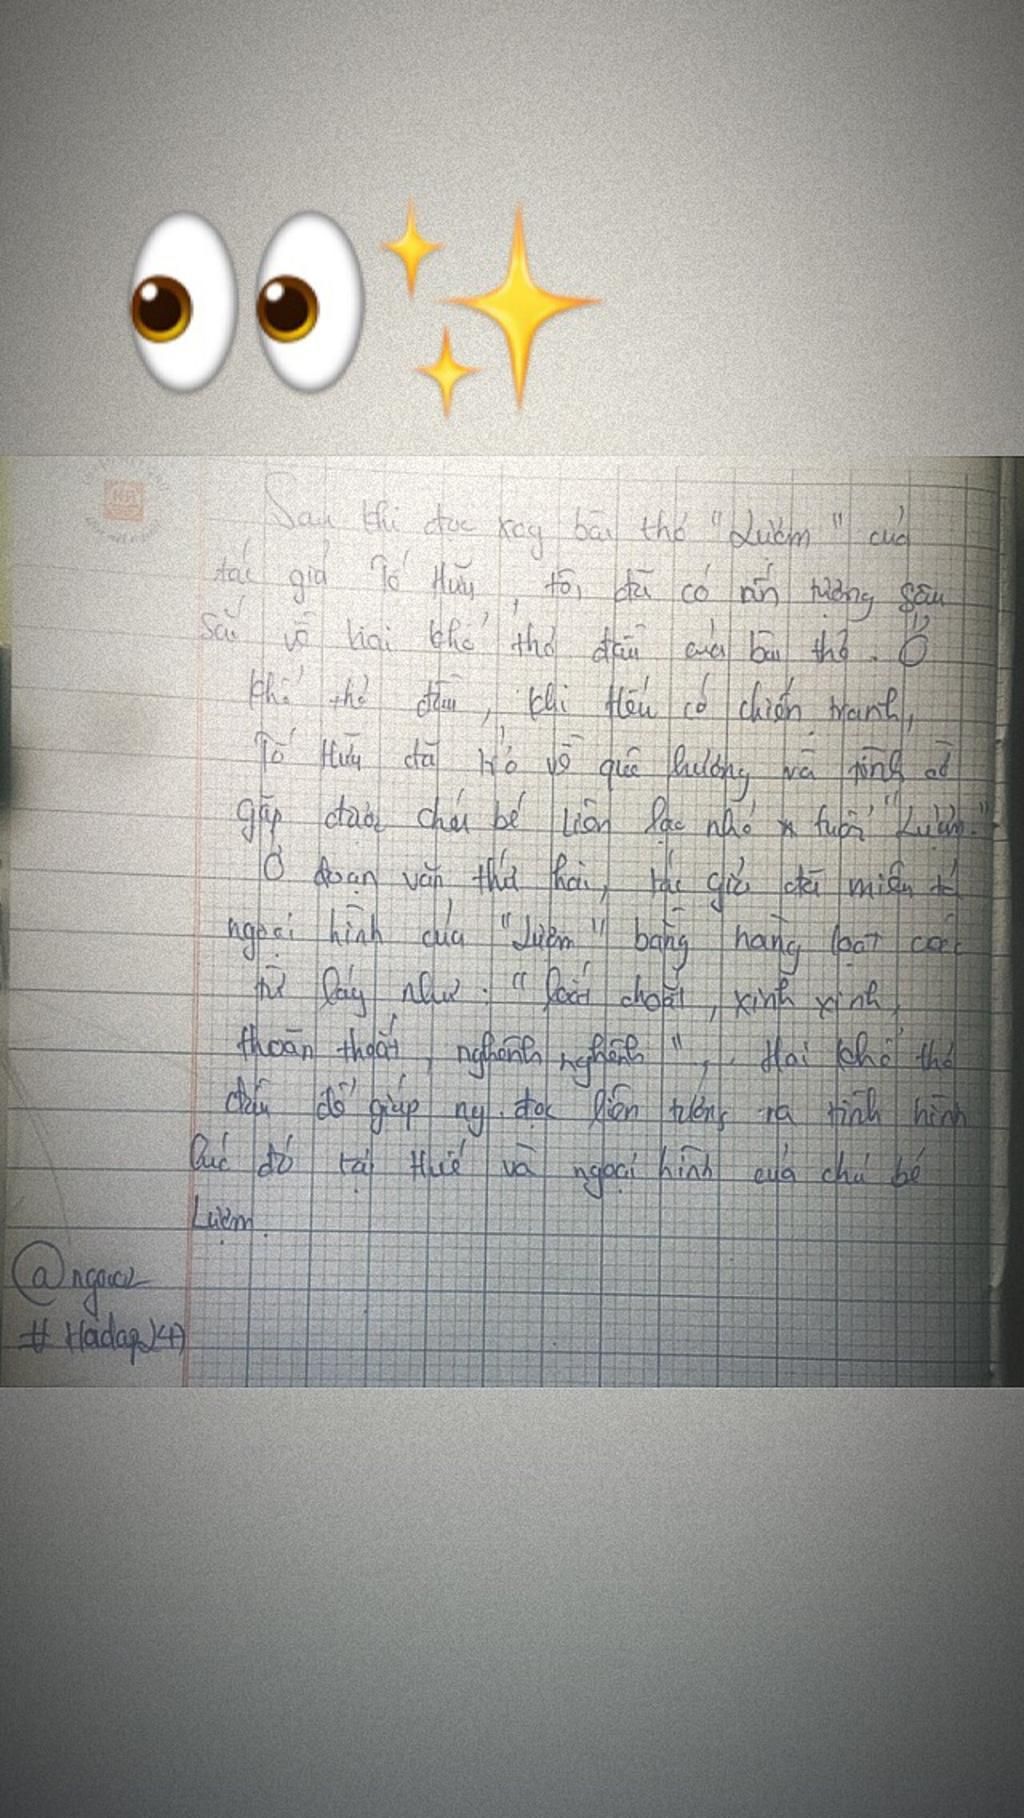 Sau khi đọc xog bài thơ "Lượm" của
tác giả Tố Hữu, tôi đã có ấn tượng sâu
sắc về hai khổ thơ đầu của bài thơ. Ở
khổ thơ đầu, khi Huế có chiến tranh,
Tố Hữu đã trở về quê hương và tình cờ
gặp được chú bé liên lạc nhỏ tuổi "Lượm."
Ở đoạn văn thứ hai, tác giả đã miêu tả
ngoại hình của "Lượm" bằng hàng loạt các
từ láy như: "loắt choắt, xinh xinh,
thoăn thoắt, nghênh nghênh", Hai khổ thơ
đầu đó giúp ng đọc liên tưởng ra tình hình
lúc đó tại Huế và ngoại hình của chú bé
Lượm.